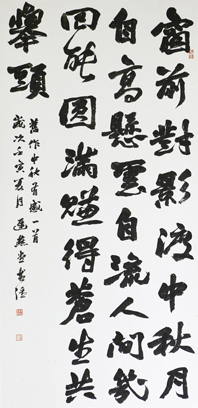 窗前對影渡中秋月
自高懸雲自流人間幾
回能圓滿贏得蒼生共
舉頭
舊作中秋有感一首
歲次壬寅夏月